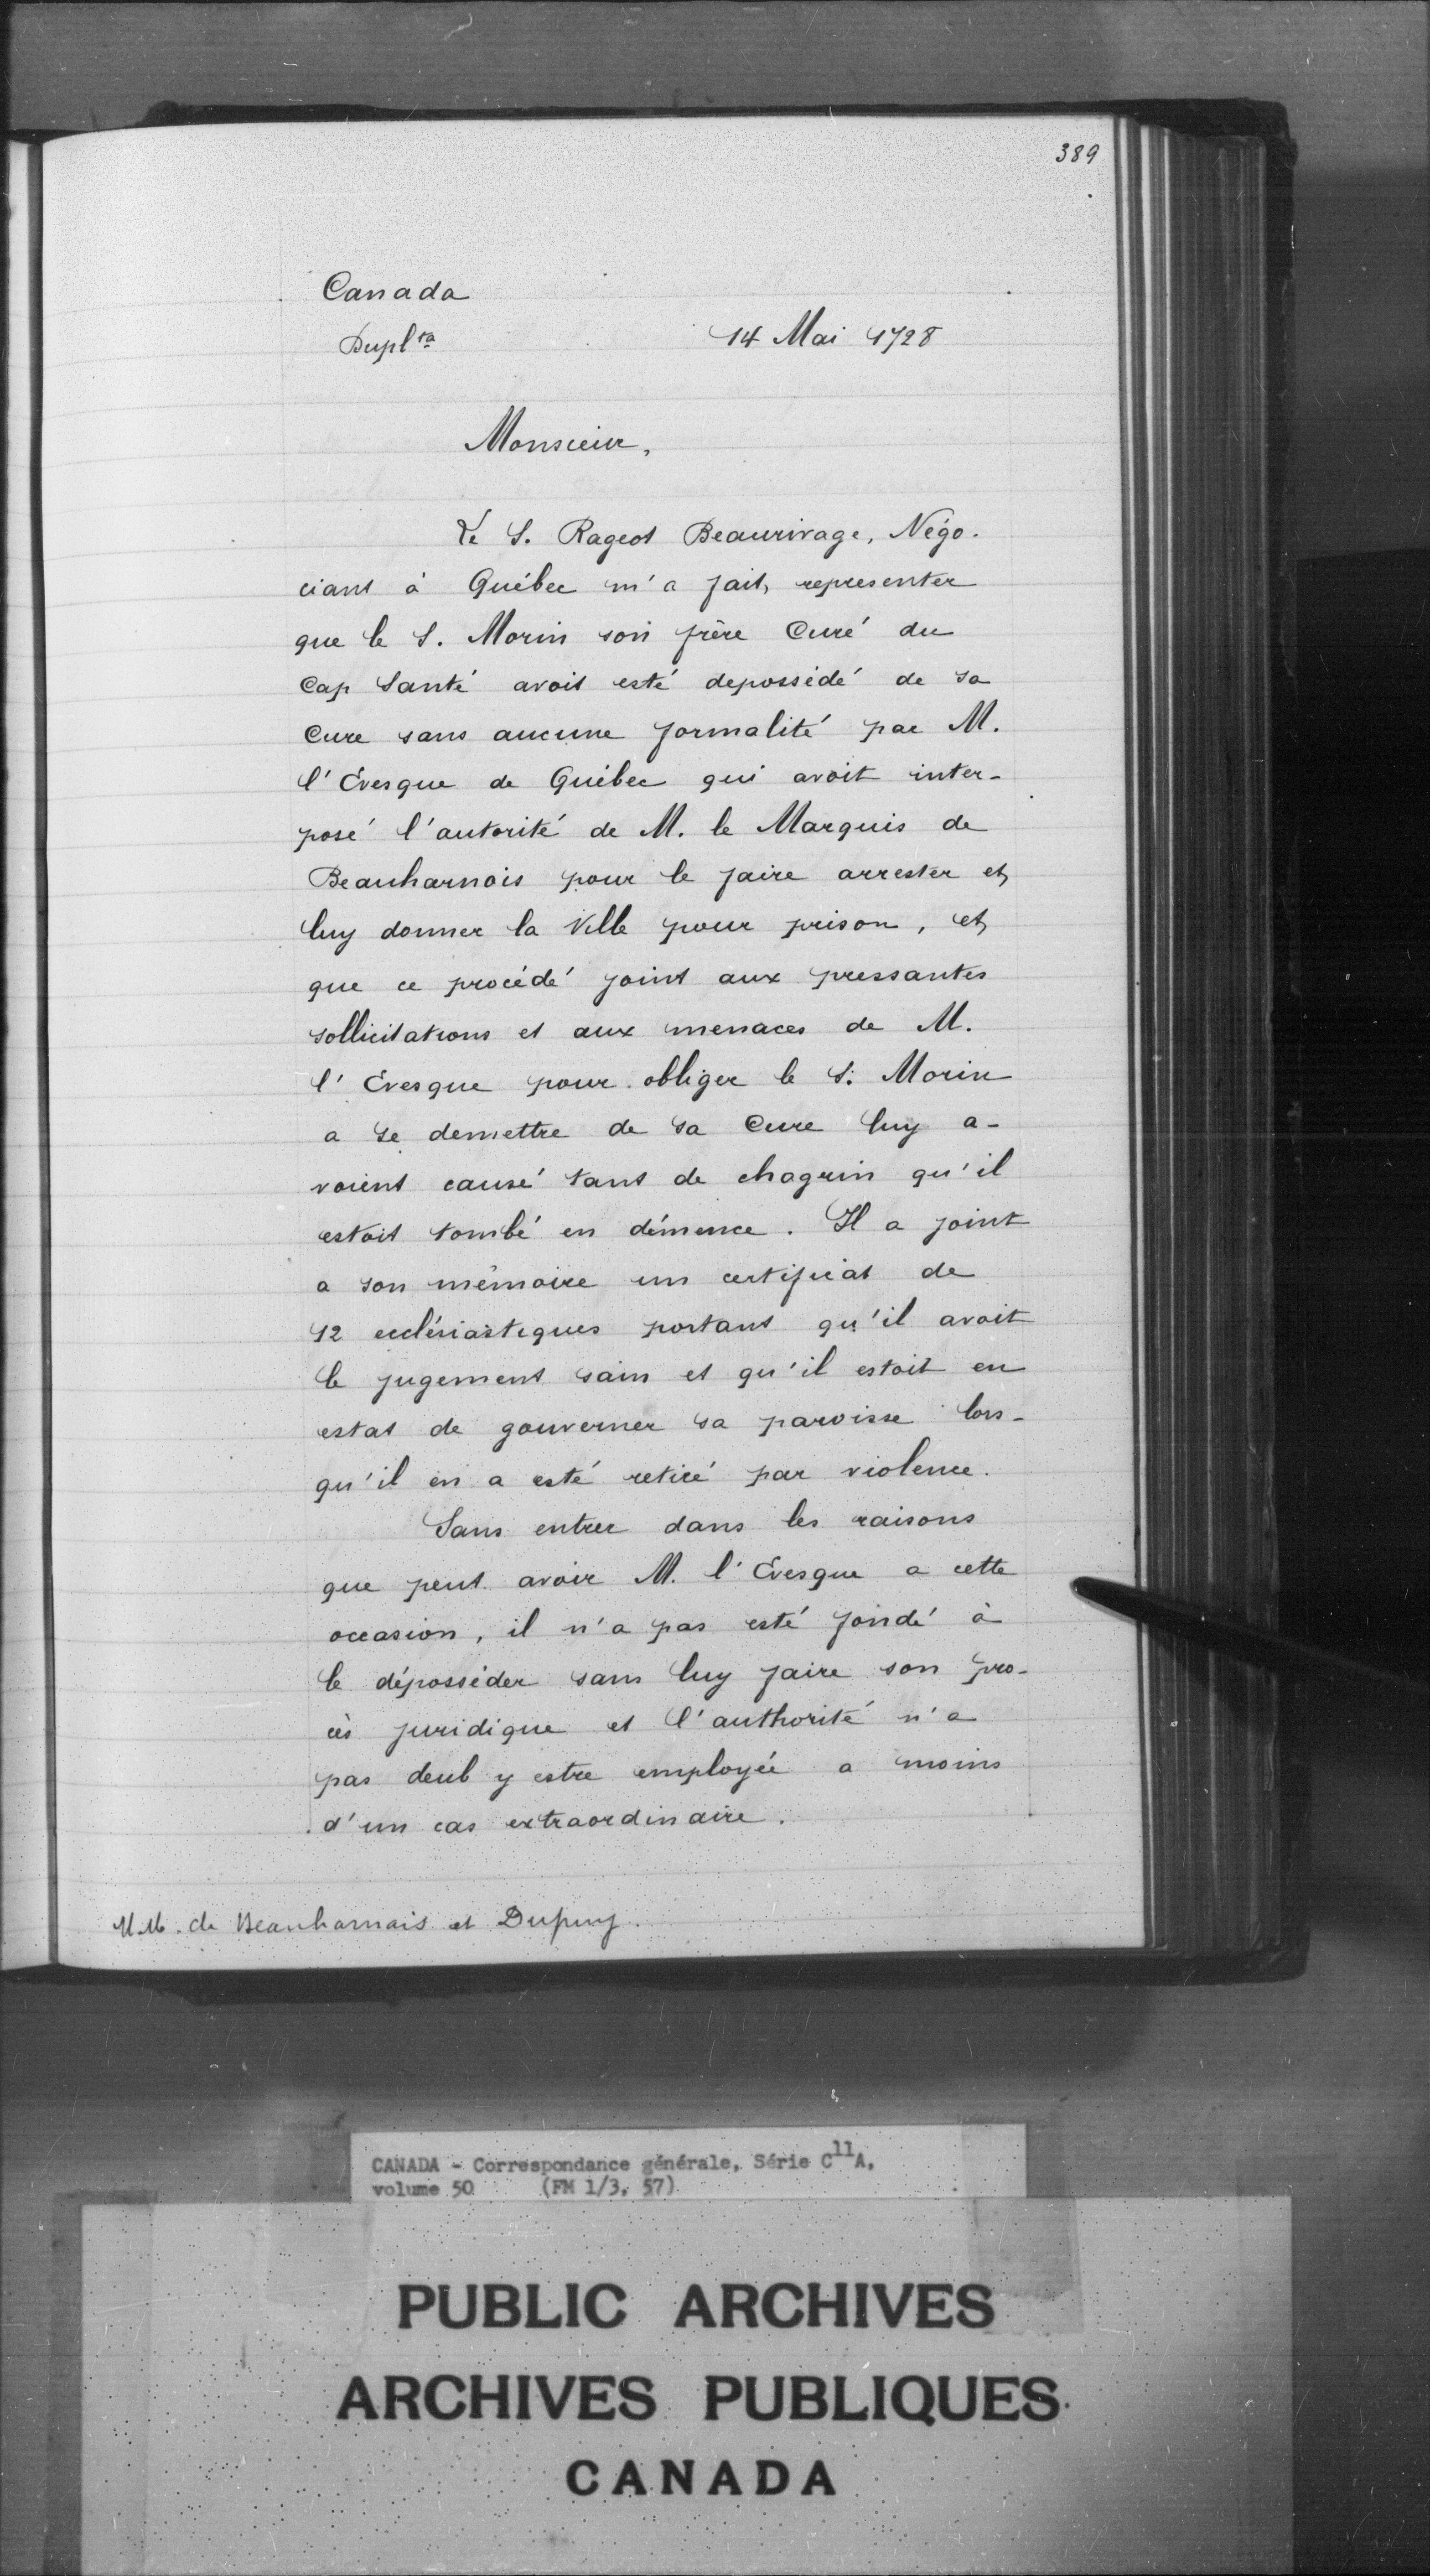 389
Canada
Dupl.ta
14 Mai 1728
Monsieur,
Le S. Rageot Beaurivage, Négo-
ciant à Québec m'a fait representer
que le S. Morin son frère Curé du
Cap Santé avoit esté depossédé de sa
Cure sans aucune formalité par M.
l'Evesque de Québec qui avoit inter-
posé l'autorité de M. le Marquis de
Beauharnois pour le faire arrester et
luy donner la Ville pour prison, et
que ce procédé joint aux pressantes
sollicitations et aux menaces de M.
l'Evesque pour obliger le S. Morin
a se demettre de sa Cure luy a-
voient causé tant de chagrin qu'il
estoit tombé en démence. Il a joint
a son mémoire un certificat de
12 ecclésiastiques portant qu'il avoit
le jugement sain et qu'il estoit en
estat de gouverner sa paroisse lors-
qu'il en a esté retiré par violence.
Sans entrer dans les raisons
que peut avoir M. l'Evesque a cette
occasion, il n'a pas esté fondé à
le déposséder sans luy faire son pro-
cès juridique et l'authorité n'a
pas deub y estre employée a moins
d'un cas extraordinaire.
M.M. de Beauharnais et Dupuy.
CANADA - Correspondance générale, Série C11A,
volume 50 (FM 1/3, 57)
PUBLIC ARCHIVES
ARCHIVES PUBLIQUES
CANADA